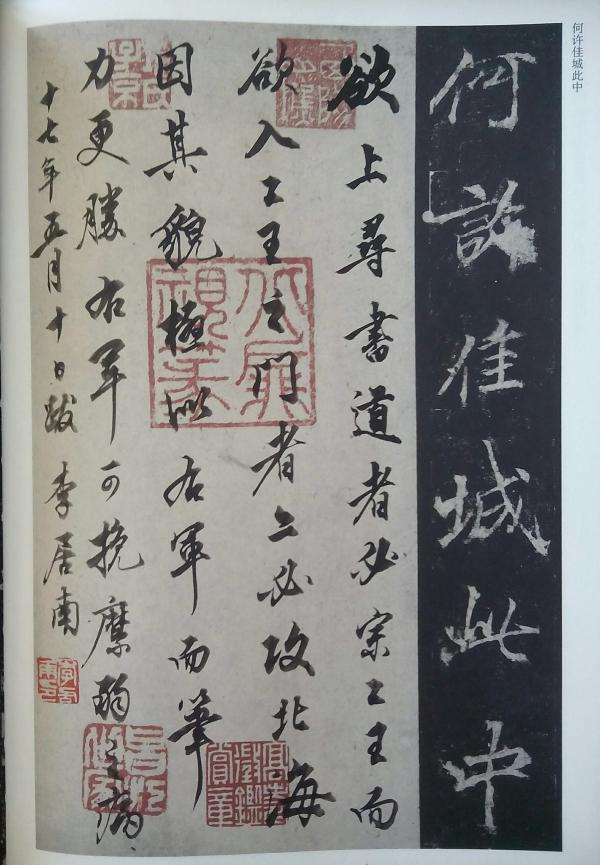 何许佳城此中
何許佳城此中
欲上尋書道者必宗二王而
欲入二王之門者亦必攻北海
因其貌極似右軍而筆
力更勝右軍可挽麋酶之病
十七年五月十日跋 李居南